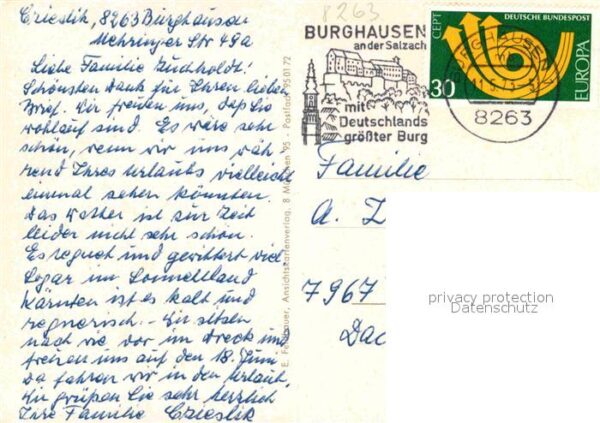 Czieslik, 8263 Burghausen
Mehringer Str 49a
Liebe Familie Zuchholdt!
Schönsten Dank für Ihren lieben
Brief. Wir freuten uns, daß Sie
wohlauf sind. Es wäre sehr
schön, wenn wir uns wäh
rend Ihres Urlaubs vielleicht
einmal sehen könnten.
Das Wetter ist zur Zeit
leider nicht sehr schön.
Es regnet und gewittert viel
Sogar im Sonnenland
Kärnten ist es kalt und
regnerisch. - Wir sitzen
nach wie vor im Dreck und
freuen uns auf den 18. Juni
Da fahren wir in den Urlaub.
Wir grüßen Sie sehr herzlich
Ihre Familie Czieslik
Ansichtskartenverlag, 8 München 95 - Postfach 950172
8263
BURGHAUSEN
an der Salzach
mit
Deutschlands
größter Burg
BURGHAUSEN
8263
CEPT
DEUTSCHE BUNDESPOST
EUROPA
30
Familie
A. Z
7967
privacy protection
Datenschutz